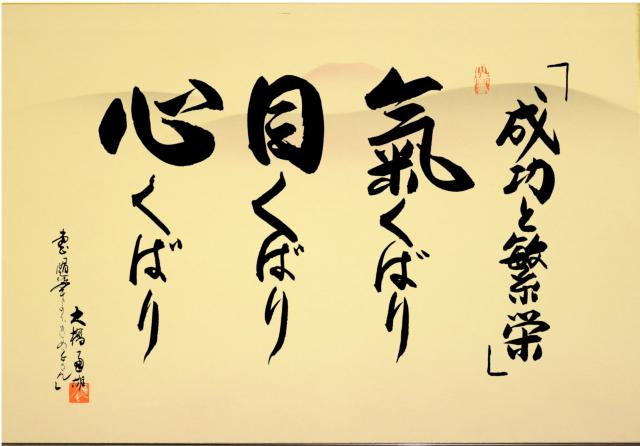 「成功と繁栄」
氣くばり
目くばり
心くばり
大橋勇雄